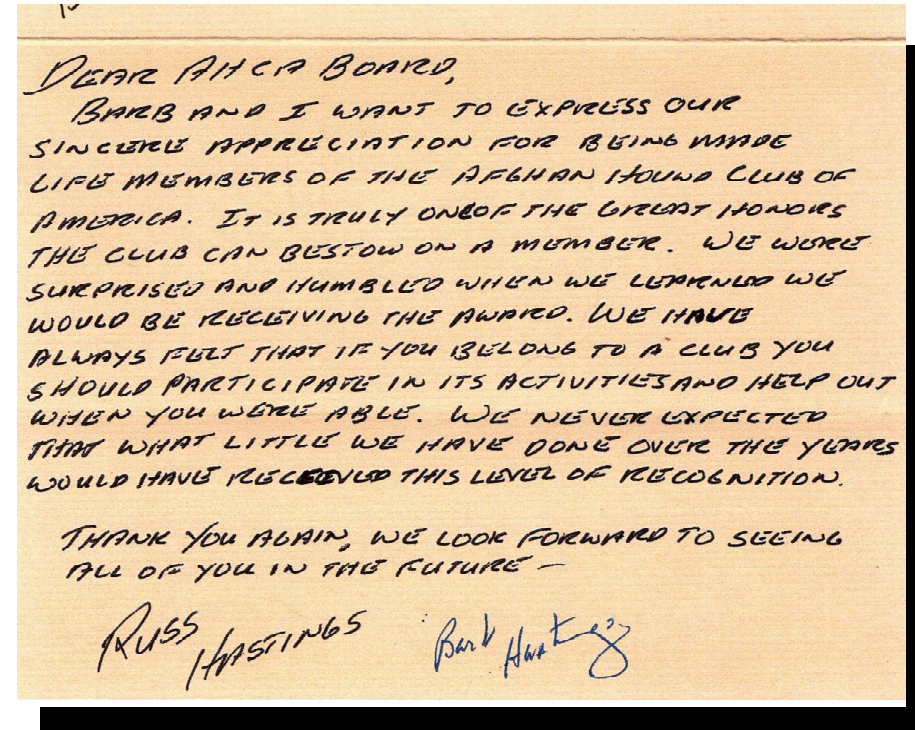 DEAR AHCA BOARD,
BARB AND I WANT TO EXPRESS OUR
SINCERE APPRECIATION FOR BEING MADE
LIFE MEMBERS OF THE AFGHAN HOUND CLUB OF
AMERICA. IT IS TRULY ONE OF THE GREAT HONORS
THE CLUB CAN BESTOW ON A MEMBER. WE WERE
SURPRISED AND HUMBLED WHEN WE LEARNED WE
WOULD BE RECEIVING THE AWARD. WE HAVE
ALWAYS FELT THAT IF YOU BELONG TO A CLUB YOU
SHOULD PARTICIPATE IN ITS ACTIVITIES AND HELP OUT
WHEN YOU WERE ABLE. WE NEVER EXPECTED
THAT WHAT LITTLE WE HAVE DONE OVER THE YEARS
WOULD HAVE RECEIVED THIS LEVEL OF RECOGNITION.
THANK YOU AGAIN, WE LOOK FORWARD TO SEEING
ALL OF YOU IN THE FUTURE —
RUSS HASTINGS Barb Hastings